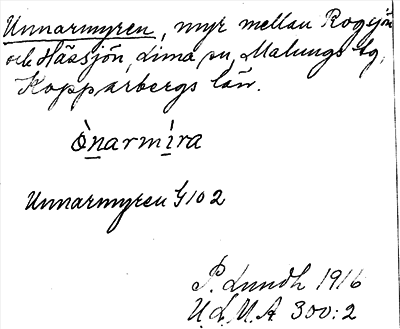 Unnarmyren, myr mellan Rogsjön
och Hässjön, Lima sn, Malungs tg,
Kopparbergs län.
ònarmìra
Unnarmyren G 10 2
P. Lundh 1916
U.L.M.A. 300:2